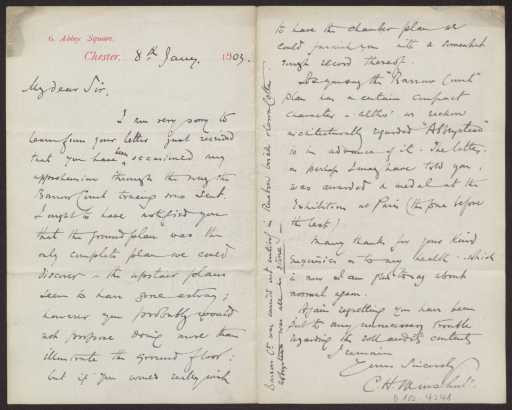 6. Abbey Square.
Chester. 8th Jany. 1903.
My dear Sir,
I am very sorry to
learn from your letter just received
that you have been occasioned any
apprehension through the way the
Barrow Court tracings was sent.
I ought to have notified you
that the "ground plan" was the
only complete plan we could
discover – the upstair plans
seem to have gone astray;
however you probably would
not propose doing more than
illustrate the ground floor:
but if you would really wish
to have the chamber plan we
could furnish you with a somewhat
rough record thereof.
the "Barrow Court"
plan has a certain compact
character – altho' we reckon
architecturally regarded "Abbeystead"
is in advance of it. The latter,
as perhaps I may have told you,
was awarded a medal at the
Exhibition at Paris (the one before
the last)
Many thanks for your kind
enquiries as to my health – which
is now I am glad to say about
normal again.
Again regretting you have been
put to any unnecessary trouble
regarding the roll and its contents
I remain
Yours Sincerely
C. H.
Barrow Ct. was carried out entirely in
Abbeystead was also in stone